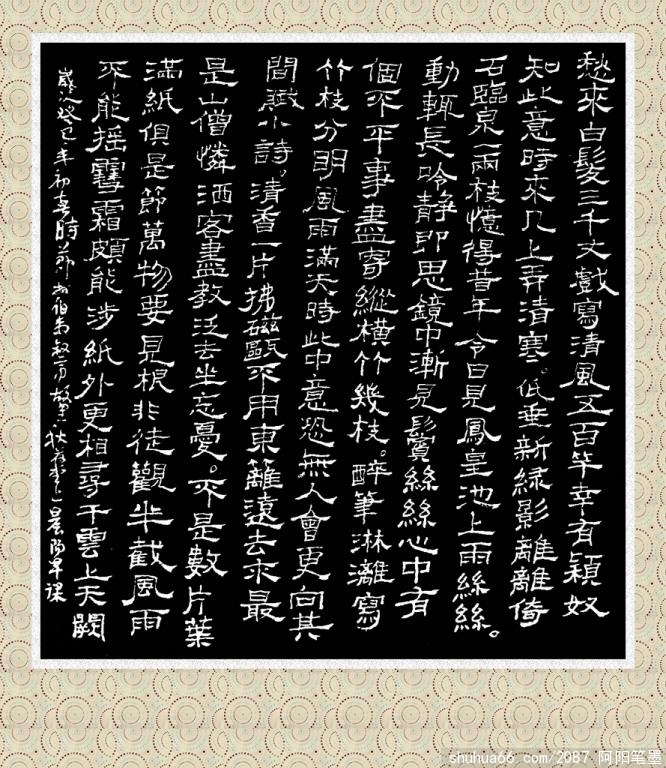 愁來白髮三千丈戲寫清風五百竿幸有穎奴
知此意時來几上弄清寒。低垂新綠影離離倚
石臨泉一兩枝憶得昔年今日見鳳皇池上雨絲絲。
動輒長吟靜即思鏡中漸見鬢絲絲心中有
個不平事盡寄縱橫竹幾枝。醉筆淋漓寫
竹枝分明風雨滿天時此中意恐無人會更向其
間緻小詩。清香一片拂磁甌不用東籬遠去求最
是山僧憐洒客盡教泛去坐忘憂。不是數片葉
滿紙俱是節萬物要見根非徒觀半截風雨
不能搖雪霜頗能涉紙外更相尋千雲上天闕
歲次癸巳年初春時節 晨陽早课
shuhua66.com/2087 阿阳笔墨